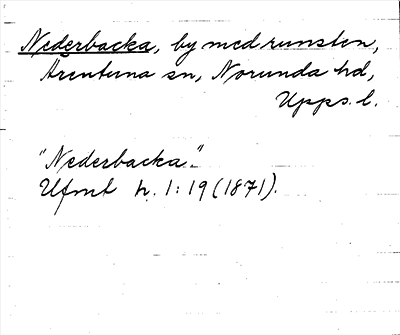 Nederbacka, by med runsten,
Ärentuna sn, Norunda hd,
Upps. l.
"Nederbacka."
Ufmt h. 1:19 (1871).